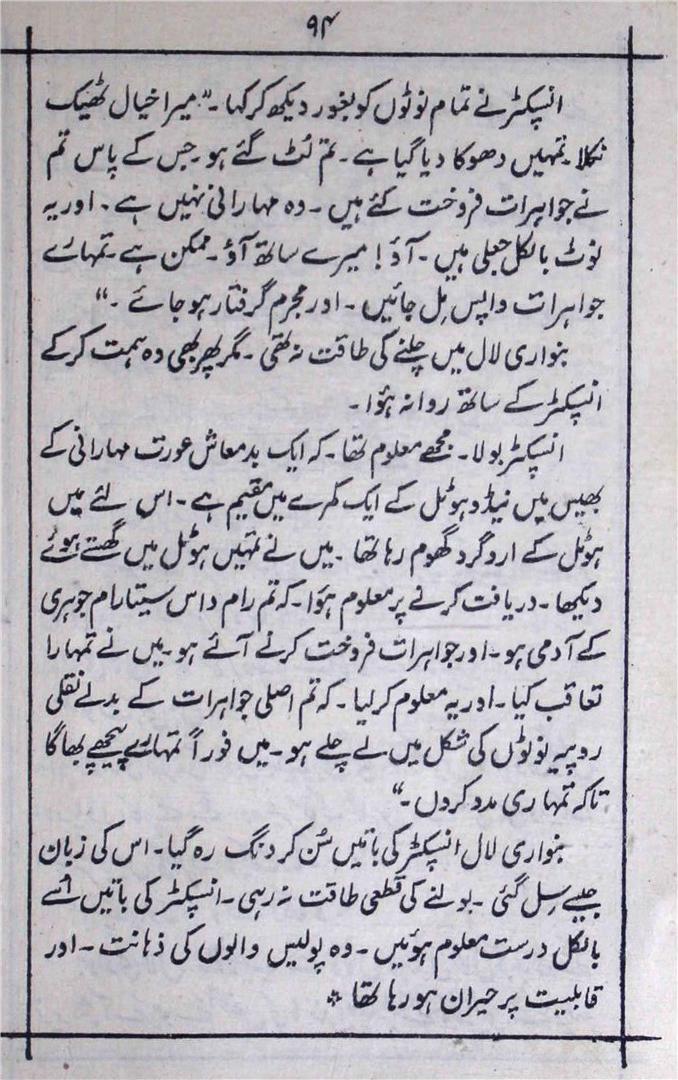 ۹۴
انسپکٹر نے تمام نوٹوں کو بغور دیکھ کر کہا۔ "میرا خیال ٹھیک
نکلا۔ تمہیں دھوکا دیا گیا ہے۔ تم لُٹ گئے ہو۔ جس کے پاس تم
نے جواہرات فروخت کئے ہیں۔ وہ مہارانی نہیں ہے۔ اور یہ
نوٹ بالکل جعلی ہیں۔ آؤ! میرے ساتھ آؤ۔ ممکن ہے۔ تمہارے
جواہرات واپس مِل جائیں۔ اور مجرم گرفتار ہو جائے۔"
بنواری لال میں چلنے کی طاقت نہ تھی۔ مگر پھر بھی وہ ہمت کر کے
انسپکٹر کے ساتھ روانہ ہؤا۔
انسپکٹر بولا۔ مجھے معلوم تھا۔ کہ ایک بدمعاش عورت مہارانی کے
بھیس میں نیڈو ہوٹل کے ایک کمرے میں مقیم ہے۔ اس لئے میں
ہوٹل کے اردگرد گھوم رہا تھا۔ میں نے تمہیں ہوٹل میں گھستے ہوئے
دیکھا۔ دریافت کرنے پر معلوم ہؤا۔ کہ تم رام داس سیتا رام جوہری
کے آدمی ہو۔ اور جواہرات فروخت کرنے آئے ہو۔ میں نے تمہارا
تعاقب کیا۔ اور یہ معلوم کر لیا۔ کہ تم اصلی جواہرات کے بدلے نقلی
روپیہ نوٹوں کی شکل میں لے چلے ہو۔ میں فوراً تمہارے پیچھے بھاگا
تاکہ تمہاری مدد کردوں۔"
بنواری لال انسپکٹر کی باتیں سُن کر دنگ رہ گیا۔ اس کی زبان
جیسے سِل گئی۔ بولنے کی قطعی طاقت نہ رہی۔ انسپکٹر کی باتیں اُسے
بالکل درست معلوم ہوئیں۔ وہ پولیس والوں کی ذہانت۔ اور
قابلیت پر حیران ہو رہا تھا ٭